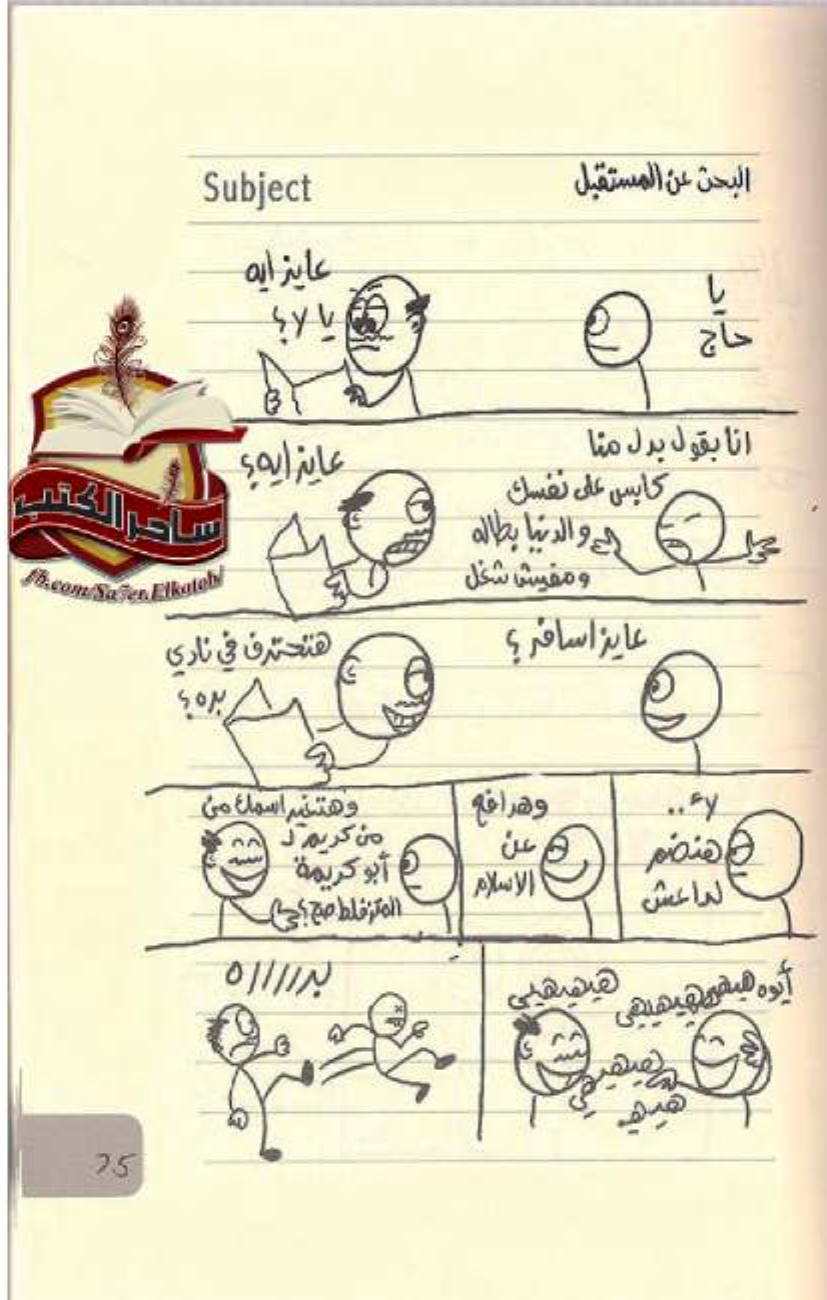 Subject
البحث عن المستقبل
يا
حاج
عايز ايه
يا لا؟
انا بقول بدل منا
كابس على نفسك
و الدنيا بطاله
ومفيش شغل
عايز ايه؟
عايز اسافر؟
هتحترف في نادي
بره؟
لاء..
هنضم
لداعش
وهدافع
عن
الاسلام
وهتغير اسمك من
من كريم لـ
أبو كريمة
المتزفلط صح؟
أيوه هيهيهيهيهيهي
هيهيهيي
هيهيهي
هيهيهي
بررررره
ساحر الكتب
fb.com/Sa7er.Elkotob/
25